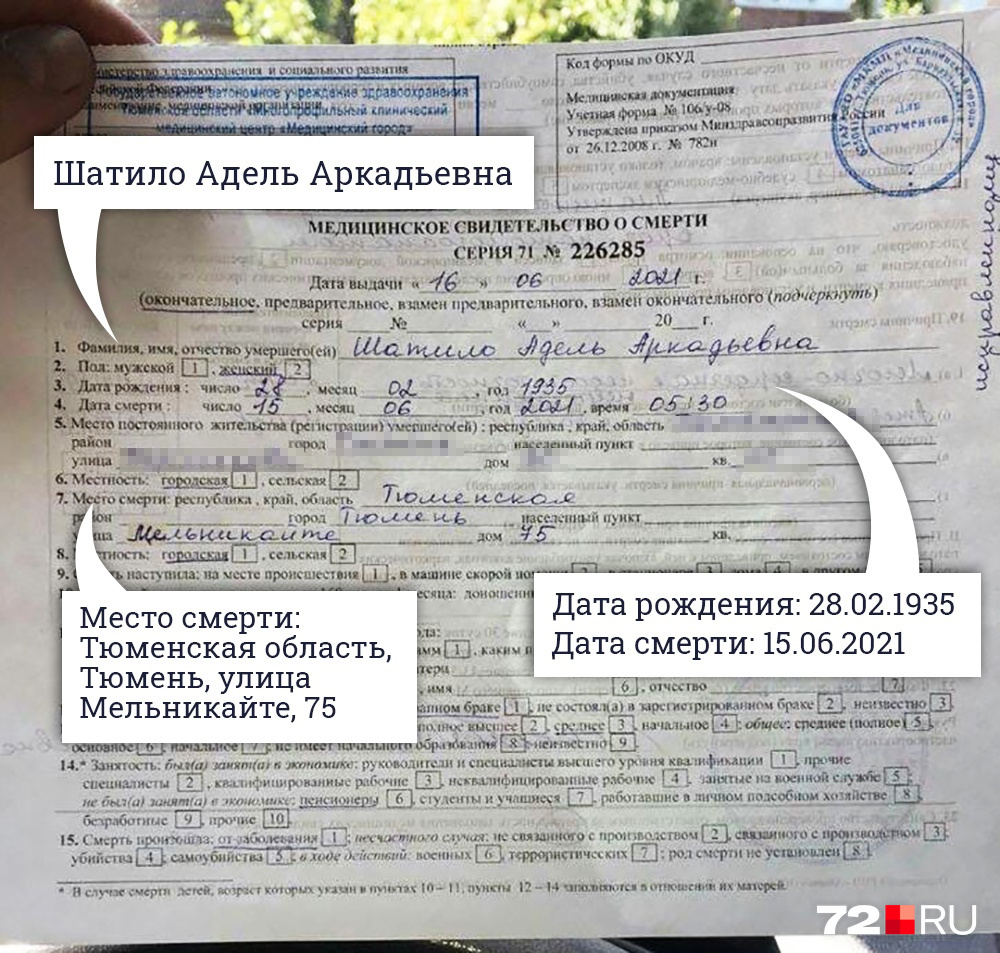 Министерство здравоохранения и социального развития
Российской Федерации
Государственное автономное учреждение здравоохранения
Тюменской области «Многопрофильный клинический
медицинский центр «Медицинский город»
Код формы по ОКУД
Медицинская документация
Учетная форма № 106/у-08
Утверждена приказом Минздравсоцразвития России
от 26.12.2008 г. № 782н
Для документов
исправленному
Шатило Адель Аркадьевна
МЕДИЦИНСКОЕ СВИДЕТЕЛЬСТВО О СМЕРТИ
СЕРИЯ 71 № 226285
Дата выдачи « 16 » 06 2021 г.
(окончательное, предварительное, взамен предварительного, взамен окончательного (подчеркнуть)
серия № « » 20 г.
1. Фамилия, имя, отчество умершего(ей) Шатило Адель Аркадьевна
2. Пол: мужской 1 , женский 2
3. Дата рождения : число 28 , месяц 02 , год 1935
4. Дата смерти : число 15 , месяц 06 , год 2021 , время 05:30
5. Место постоянного жительства (регистрации) умершего(ей) : республика , край, область
район город населенный пункт
улица дом кв.
6. Местность: городская 1 , сельская 2
7. Место смерти: республика , край, область Тюменская
район город Тюмень , населенный пункт
улица Мельникайте дом 75 кв.
8. Местность: городская 1 , сельская 2
9. наступила: на месте происшествия 1 , в машине скорой
Место смерти:
Тюменская область,
Тюмень, улица
Мельникайте, 75
Дата рождения: 28.02.1935
Дата смерти: 15.06.2021
месяца:
1 , каким
, имя 6 , отчество 7
браке 1 , не состоял(а) в зарегистрированном браке 2 , неизвестно 3
высшее 2 , среднее 3 , начальное 4 ; общее: среднее (полное) 5
основное 6 , начальное 7 ; не имеет начального образования 8 ; неизвестно 9 .
14.* Занятость: был(а) занят(а) в экономике: руководители и специалисты высшего уровня квалификации 1 , прочие
специалисты 2 , квалифицированные рабочие 3 , неквалифицированные рабочие 4 , занятые на военной службе 5 ;
не был(а) занят(а) в экономике: пенсионеры 6 , студенты и учащиеся 7 , работавшие в личном подсобном хозяйстве 8 ,
безработные 9 , прочие 10 .
15. Смерть произошла: от заболевания 1 ; несчастного случая: не связанного с производством 2 , связанного с производством 3 ,
убийства 4 , самоубийства 5 ; в ходе действий: военных 6 , террористических 7 ; род смерти не установлен 8 .
* В случае смерти детей, возраст которых указан в пунктах 10 – 11, пункты 12 – 14 заполняются в отношении их матерей.
72.RU